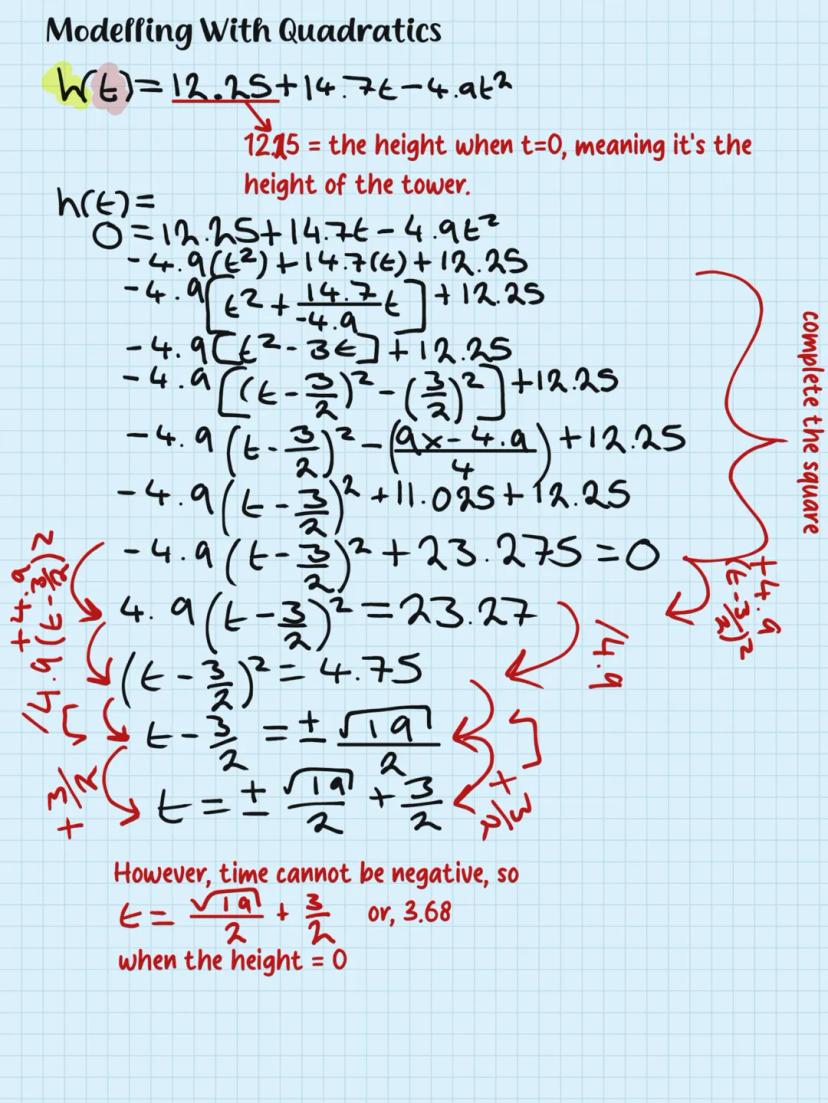 Modelling With Quadratics
h(t) = 12.25 + 14.7t - 4.9t²
12.25 = the height when t=0, meaning it's the
height of the tower.
h(t) =
0 = 12.25 + 14.7t - 4.9t²
-4.9(t²) + 14.7(t) + 12.25
-4.9[t² + 14.7/-4.9 t] + 12.25
-4.9[t² - 3t] + 12.25
-4.9[(t - 3/2)² - (3/2)²] + 12.25
-4.9(t - 3/2)² - (9x-4.9/4) + 12.25
-4.9(t - 3/2)² + 11.025 + 12.25
-4.9(t - 3/2)² + 23.275 = 0
4.9(t - 3/2)² = 23.27
(t - 3/2)² = 4.75
t - 3/2 = ± √19/2
t = ± √19/2 + 3/2
complete the square
+4.9
(t-3/2)²
/4.9
√
+3/2
+4.9(t-3/2)²
/4.9
√
+3/2
However, time cannot be negative, so
t = √19/2 + 3/2 or, 3.68
when the height = 0